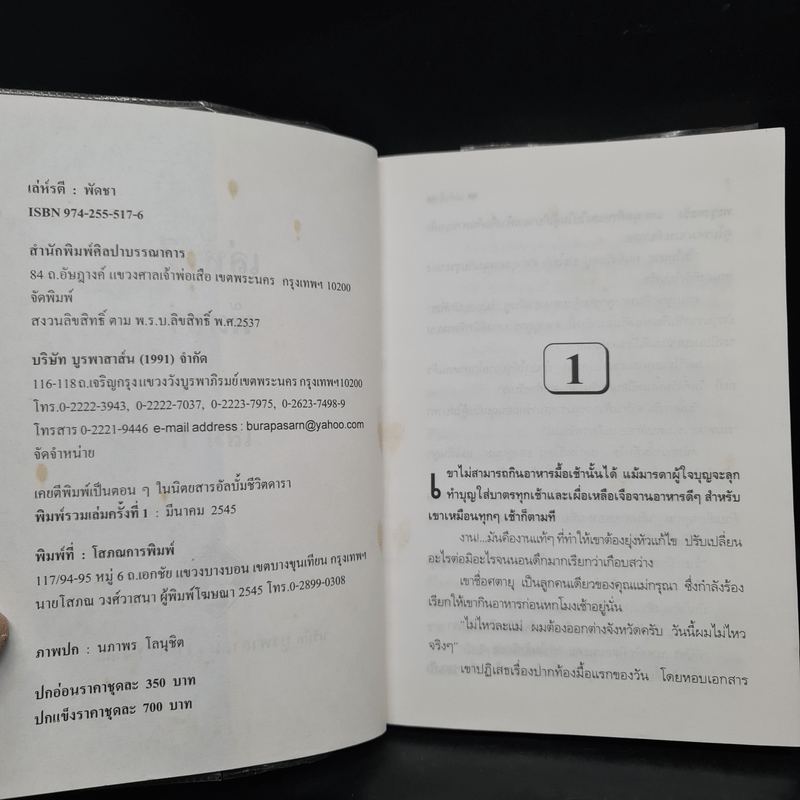 เล่ห์รตี : พัดชา
ISBN 974-255-517-6
สำนักพิมพ์ศิลปาบรรณาคาร
84 ถ.อัษฎางค์ แขวงศาลเจ้าพ่อเสือ เขตพระนคร กรุงเทพฯ 10200
จัดพิมพ์
สงวนลิขสิทธิ์ ตาม พ.ร.บ.ลิขสิทธิ์ พ.ศ.2537
บริษัท บูรพาสาส์น (1991) จำกัด
116-118 ถ.เจริญกรุง แขวงวังบูรพาภิรมย์ เขตพระนคร กรุงเทพฯ 10200
โทร.0-2222-3943, 0-2222-7037, 0-2223-7975, 0-2623-7498-9
โทรสาร 0-2221-9446 e-mail address : burapasarn@yahoo.com
จัดจำหน่าย
เคยตีพิมพ์เป็นตอน ๆ ในนิตยสารอัลบั้มชีวิตดารา
พิมพ์รวมเล่มครั้งที่ 1 : มีนาคม 2545
พิมพ์ที่ : โสภณการพิมพ์
117/94-95 หมู่ 6 ถ.เอกชัย แขวงบางบอน เขตบางขุนเทียน กรุงเทพฯ
นายโสภณ วงศ์วาสนา ผู้พิมพ์โฆษณา 2545 โทร.0-2899-0308
ภาพปก : นภาพร โลนุชิต
ปกอ่อนราคาชุดละ 350 บาท
ปกแข็งราคาชุดละ 700 บาท
1
เขาไม่สามารถกินอาหารมื้อเช้านั้นได้ แม้มารดาผู้ใจบุญจะลุก
ทำบุญใส่บาตรทุกเช้าและเผื่อเหลือเจือจานอาหารดีๆ สำหรับ
เขาเหมือนทุกๆ เช้าก็ตามที
งาน!...มันคืองานแท้ๆ ที่ทำให้เขาต้องยุ่งหัวแก้ไข ปรับเปลี่ยน
อะไรต่อมิอะไรจนนอนดึกมากเรียกว่าเกือบสว่าง
เขาชื่อศตายุ เป็นลูกคนเดียวของคุณแม่กรุณา ซึ่งกำลังร้อง
เรียกให้เขากินอาหารก่อนหกโมงเช้าอยู่นั่น
"ไม่ไหวละแม่ ผมต้องออกต่างจังหวัดครับ วันนี้ผมไม่ไหว
จริงๆ"
เขาปฏิเสธเรื่องปากท้องมื้อแรกของวัน โดยหอบเอกสาร